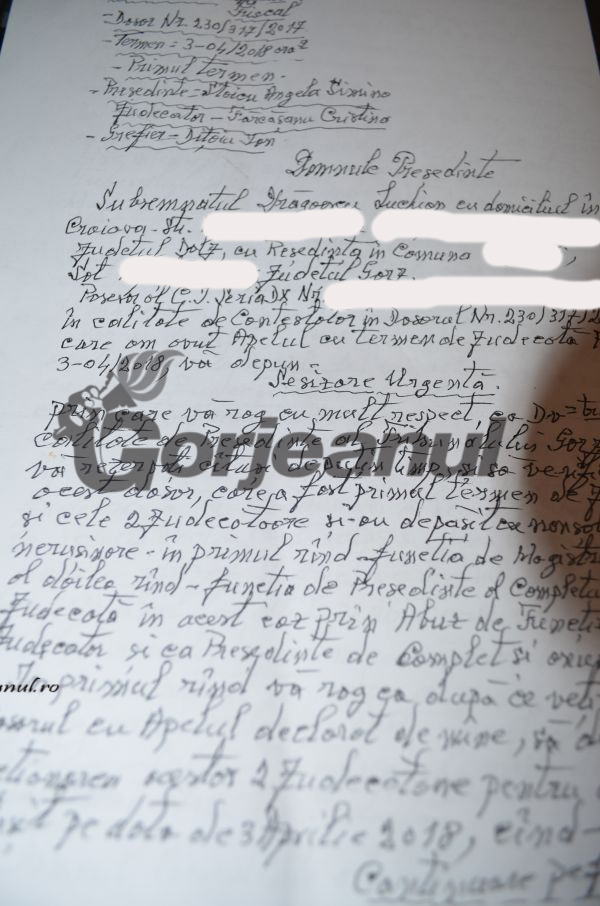 Fiscal
- Dosor Nr. 230/317/2017
- Termen = 3-04/2018 ora
- Primul termen.
- Presedinte = Stoicu Angela Simina
Judecator - Farcasanu Cristina
- Grefier - Ditoiu Ion
Domnule Presedinte
Subsemnatul Luchian cu domiciliul în
Craiova - Str.
Judetul Dolz, cu Resedinta în Comuna ,
Sat Judetul Gorz.
Posesor al C.I. Seria DX Nr.
în calitate de Contestator în Dosarul Nr. 230/317/2
care am avut Apelul cu termen de Judecată
3-04/2018, vă depun -
Sesizare Urgentă.
Prin care vă rog cu mult respect, ca Dv =
calitate de Presedinte al Tribunalului Gorz
va
acest dosar, care a fost primul termen de
si cele 2 Judecatoare si-au depasit cu
nerusinare - în primul rînd - functia de Magistr
al doilea rînd - functia de Presedinte al Completu
Judecată în acest caz prin Abuz de Functie
Judecator si ca Presedinte de Complet si
anul.ro
In primul rînd vă rog ca după ce veti
osarul cu Apelul declarat de mine, să
acestor 2 Judecatoare pentru
pe data de 3 Aprilie 2018, cînd -
Continuare
Gorjeanul